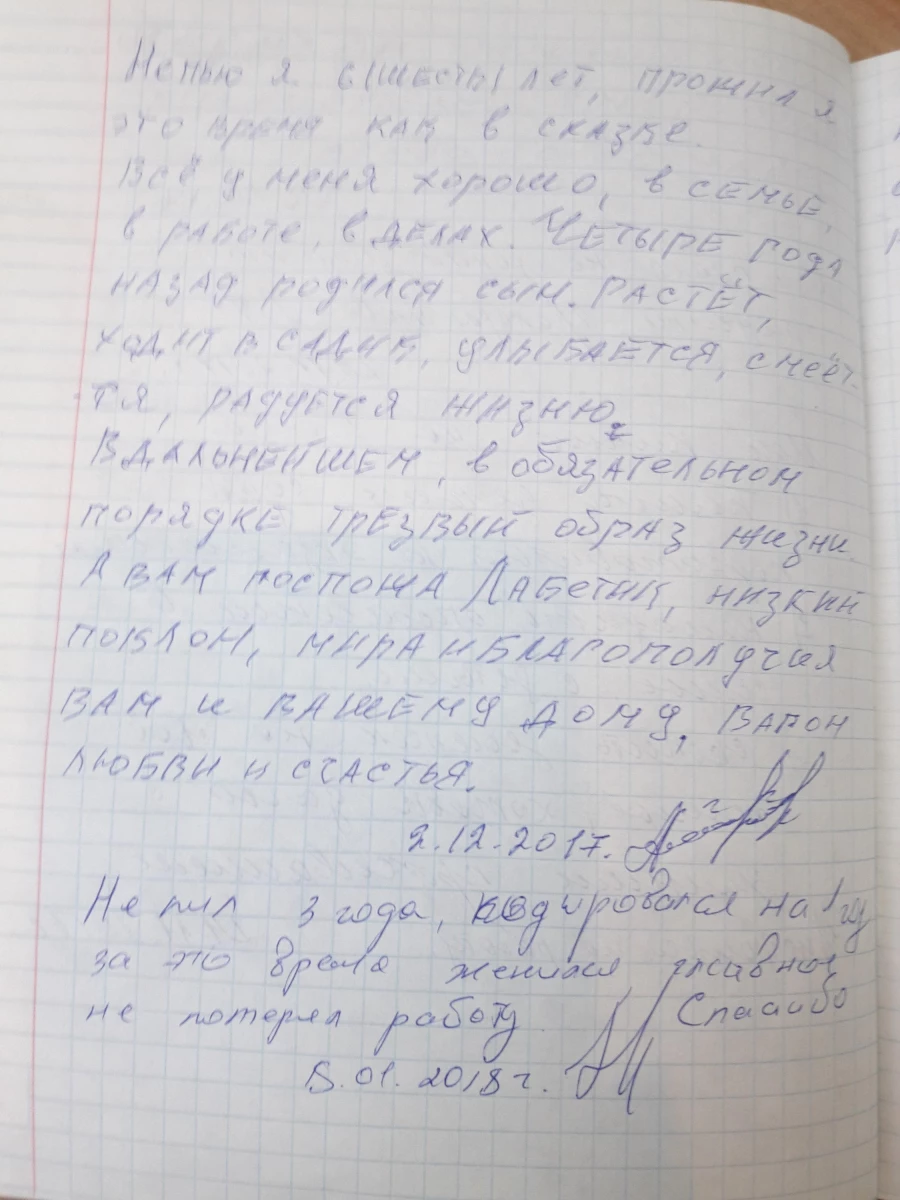 Непью я 6 (шесть) лет, прожил я
это время как в сказке.
Всё у меня хорошо, в семье,
в работе, в делах. Четыре года
назад родился сын. Растёт,
ходит в садик, улыбается, смеёт-
тя, радуется жизнью.
В дальнейшем, в обязательном
порядке трезвый образ жизни.
А вам госпожа Лабетик, низкий
поклон, мира и благополучия
вам и вашему дому, вагон
любви и счастья.
2.12.2017.
Не пил 3 года, кодировался на 1 год
за это время женился главное
не потерял работу Спасибо
5.01.2018 г.